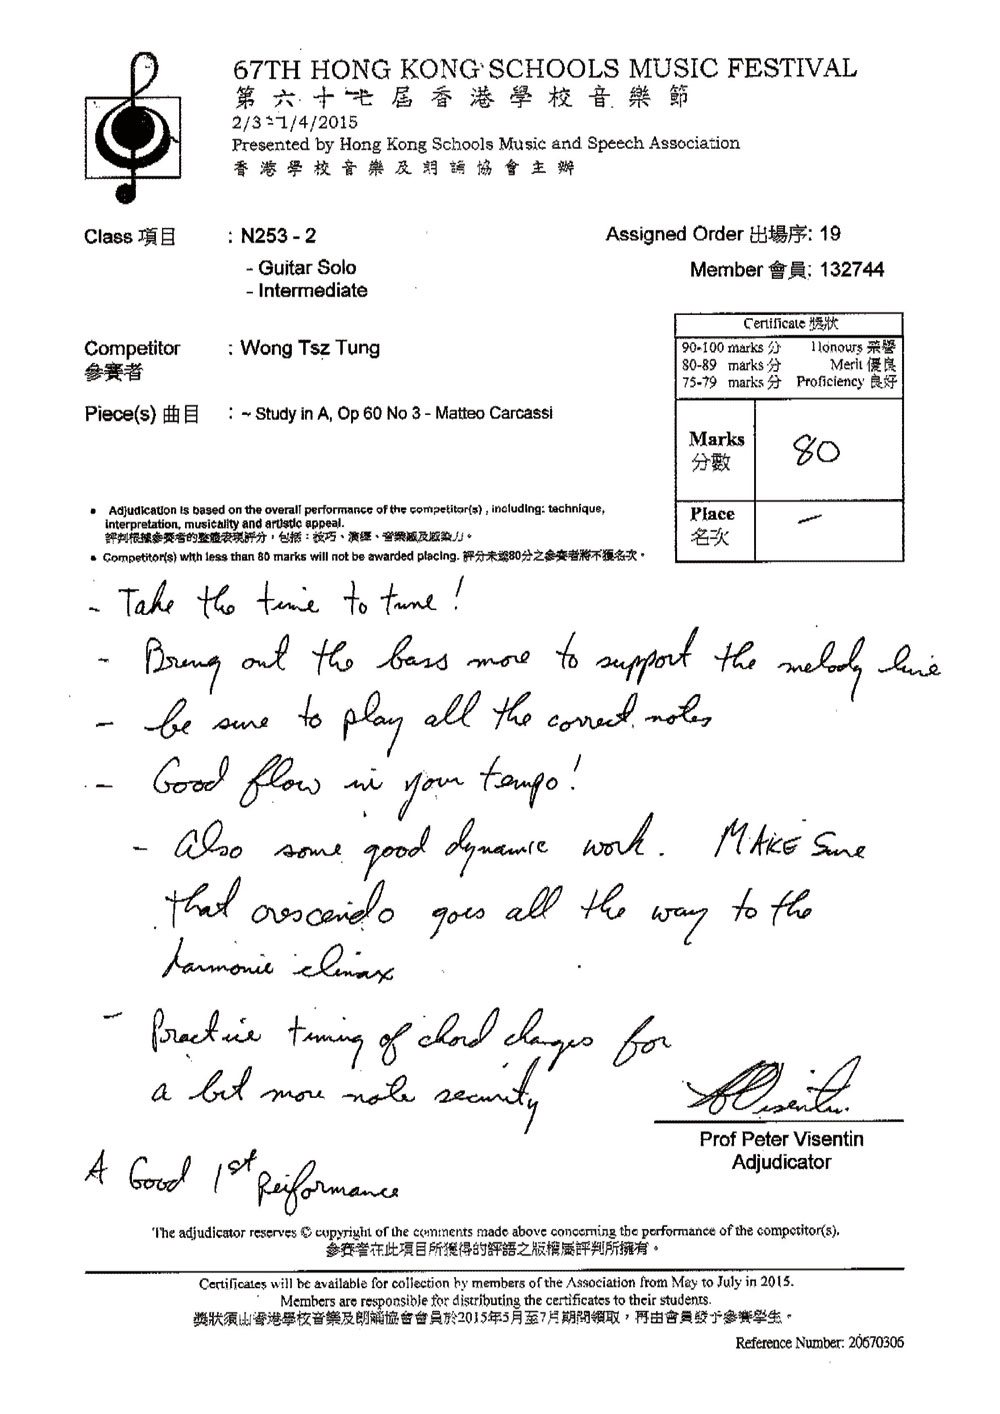 67TH HONG KONG SCHOOLS MUSIC FESTIVAL
第六十七屆香港學校音樂節
2/3 - 1/4/2015
Presented by Hong Kong Schools Music and Speech Association
香港學校音樂及朗誦協會主辦
Class 項目 : N253 - 2
Assigned Order 出場序: 19
- Guitar Solo
Member 會員: 132744
- Intermediate
Certificate 獎狀
90-100 marks 分 Honours 榮譽
80-89 marks 分 Merit 優良
75-79 marks 分 Proficiency 良好
Competitor : Wong Tsz Tung
參賽者
Piece(s) 曲目 : ~ Study in A, Op 60 No 3 - Matteo Carcassi
Marks 80
分數
Place –
名次
• Adjudication is based on the overall performance of the competitor(s) , including: technique,
interpretation, musicality and artistic appeal.
評判根據參賽者的整體表現評分，包括：技巧、演繹、音樂感及感染力。
• Competitor(s) with less than 80 marks will not be awarded placing. 評分未達80分之參賽者將不獲名次。
- Take the time to tune!
- Bring out the bass more to support the melody line
- be sure to play all the correct notes
- Good flow in your tempo!
- Also some good dynamic work. MAKE Sure
that crescendo goes all the way to the
harmonic climax
- Practice timing of chord changes for
a bit more note security
P Visentin
Prof Peter Visentin
Adjudicator
A Good 1st Performance
The adjudicator reserves © copyright of the comments made above concerning the performance of the competitor(s).
參賽者在此項目所獲得的評語之版權屬評判所擁有。
Certificates will be available for collection by members of the Association from May to July in 2015.
Members are responsible for distributing the certificates to their students.
獎狀須由香港學校音樂及朗誦協會會員於2015年5月至7月期間領取，再由會員發予參賽學生。
Reference Number: 20670306